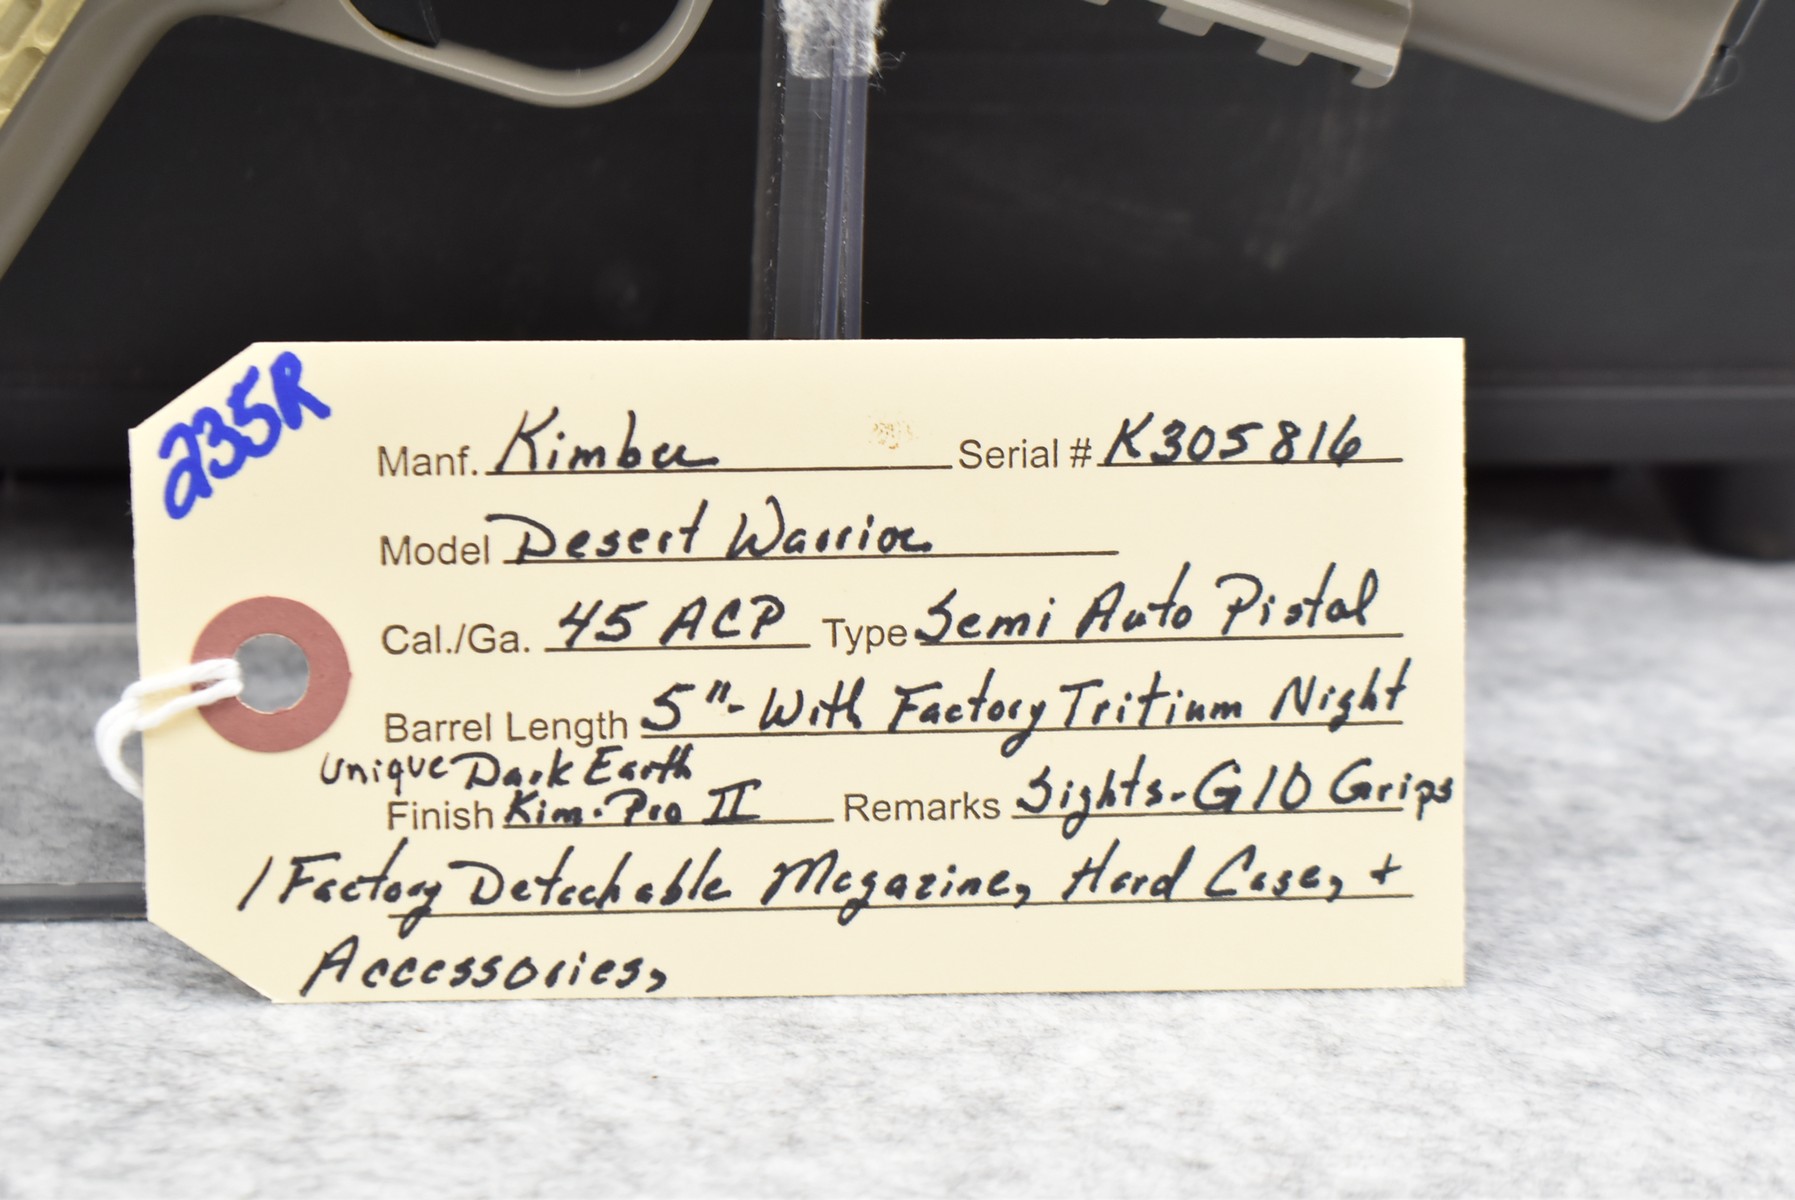 235R
Manf. Kimber Serial # K305816
Model Desert Warrior
Cal./Ga. 45 ACP Type Semi Auto Pistol
Barrel Length 5"- With Factory Tritium Night
Unique Dark Earth
Finish Kim-Pro II Remarks Sights-G10 Grips
1 Factory Detachable Magazine, Hard Case, +
Accessories,